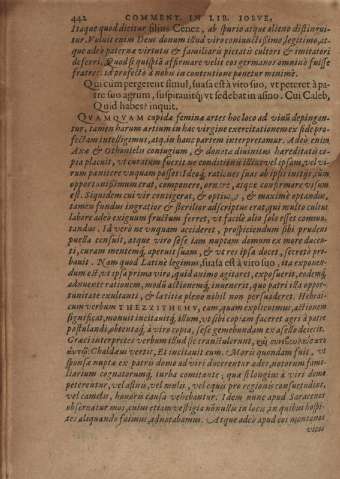 442 COMMENT. IN LIB. IOSVE,
Itaque quod dicitur filius Cenez, ab spurio atque alieno distingui-
tur. Voluit enim Deus donum illud viro coniunctissimo, legitimo, at-
que adeò paternæ virtutis & familiaris pietatis cultori & imitatori
deferri. Quod si quispiã affirmare velit eos germanos omnino fuisse
fratres, is profectò à nobis in contentione ponetur minimè.
Qui cùm pergerent simul, suasa est à viro suo, vt peteret à pa-
tre suo agrum, suspirauitq́; vt sedebat in asino. Cui Caleb,
Quid habes? inquit.
QVAMQVAM cupidæ feminæ artes hoc loco ad viuũ depingan-
tur, tamen harum artium in hac virgine exercitationem ex fide pro-
fectam intelligimus, atq; in hanc partem interpretamur. Adeò enim
Axæ & Othnielis coniugium, & donata diuinitus hæreditatis co-
pia placuit, vt
rum pœnitere vnquam posset Ideoq́; rationes suas ab ipsis initijs, cùm
opportunissimum erat, componere, ornare, atque confirmare visum
est. Siquidem cui vir contigerat, & optimus, & maximè optandus,
tamen fundus ingratior & sterilior adscriptus erat, qui multo cultus
labore adeò exiguum fructum ferret, vt facilè alio solo esset commu-
tandus. Id verò ne vnquam accideret, prospiciendum sibi prudens
puella censuit, atque viro sese iam nuptam domum ex more ducen-
ti, curam mentemq́; aperuit suam, & vt res ipsa docet, secretò pro-
bauit. Nam quod Latinè legimus, suasa est à viro suo, ita exponen-
dum est, vt ipsa primò viro, quid animo agitaret, exposuerit, eodemq́;
adnuente rationem, modũ actionemq́; inuenerit, quo patri ista oppor-
tunitate exultanti, & lætitia pleno nihil non persuaderet. Hebrai-
cum verbum THEZITHEHV, eum, quem explicuimus, actionem
significat, monuit incitauitq́; illum, vt sibi copiam faceret agri à patre
postulandi, abeuntaq́; à viro copia, sese gemebundam ex asello deiecit.
Græci interpretes verbum illud sic transtulerunt,
Chaldæus vertit, Et incitauit eum. Moris quondam fuit, vt
sponsa nupta ex patris domo ad viri duceretur ædes, notorum fami-
liarium cognatorumq́; turba comitante: qua si longius à viri domo
peterentur, vel asinis, vel mulis, vel equis pro regionis consuetudine,
vel camelis, honoris causa vehebantur. Idem nunc apud Saracenos
obseruatur mos, cuius etiam vestigia nonnullis in locis, in quibus hospi-
tes aliquando fuimus, adnotabamus. Atque adeò apud eos montanos
vicos